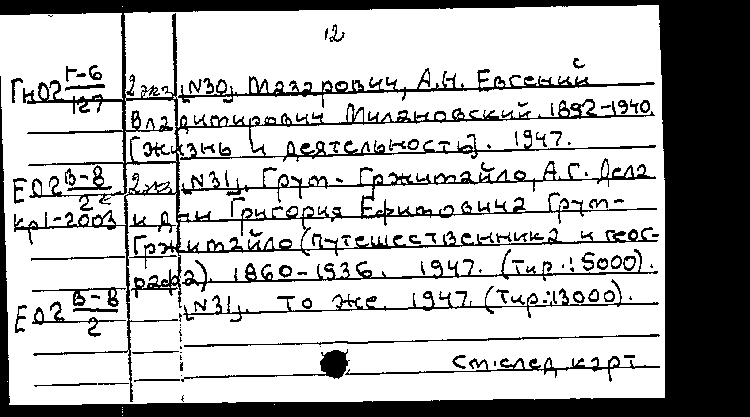 12
ГнО2 Г-6/127 2 экз. [№30]. Мазарович, А.Н. Евгений
Владимирович Милановский. 1892-1940.
[Жизнь и деятельность]. 1947.
ЕО2 В-8/2 2 экз. [№31]. Грум-Гржимайло, А.Г. Дела
кр1-2003 и дни Григория Ефимовича Грум-
Гржимайло (путешественника и геог-
рафа). 1860-1936. 1947. (Тир.: 5000).
ЕО2 В-8/2 [№31]. То же. 1947. (Тир.: 13000).
см. след. карт.